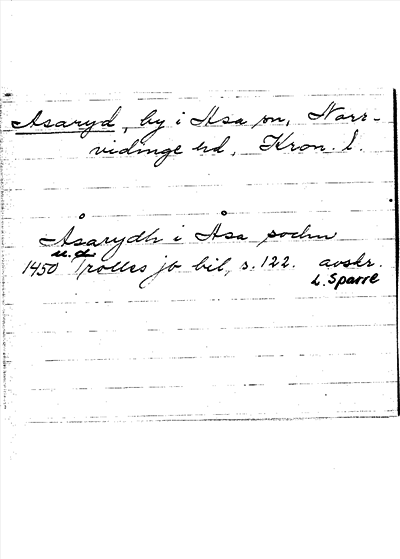 Asaryd, by i Asa sn, Norr-
vidinge hd, Kron. l.
Åsarydh i Åsa sochn
1450 u.d. Trolles jb bil, s. 122. avskr.
L. Sparre